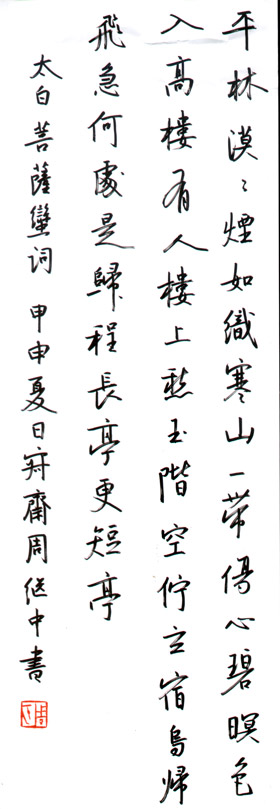 平林漠〻煙如織寒山一帶傷心碧暝色
入高樓有人樓上愁玉階空佇立宿鳥帰
飛急何處是歸程長亭更短亭
太白菩薩蠻詞 甲申夏日齋周继中書